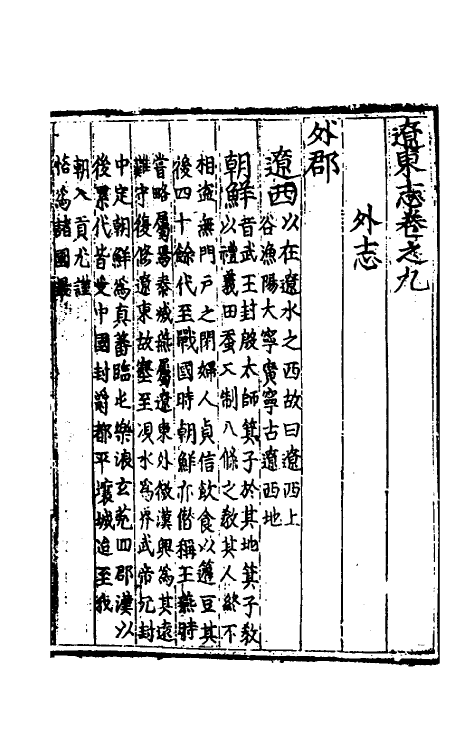 遼東志卷之九
外志
外郡
遼西以在遼水之西故曰遼西上
谷漁陽大寧廣寧古遼西地
朝鮮昔武王封殷太師箕子於其地箕子教
以禮義田蚕工制八條之教其人終不
相盜無門戸之閉婦人貞信飲食以籩豆其
後四十餘代至戰國時朝鮮亦僭稱王燕時
嘗略屬焉秦滅燕屬遼東外徼漢興為其遠
難守後修遼東故塞至浿水為界武帝元封
中定朝鮮為真蕃臨屯樂浪玄菟四郡漢以
後累代皆受中國封爵都平壤城迨至我
朝入貢尤謹
恪為諸國最